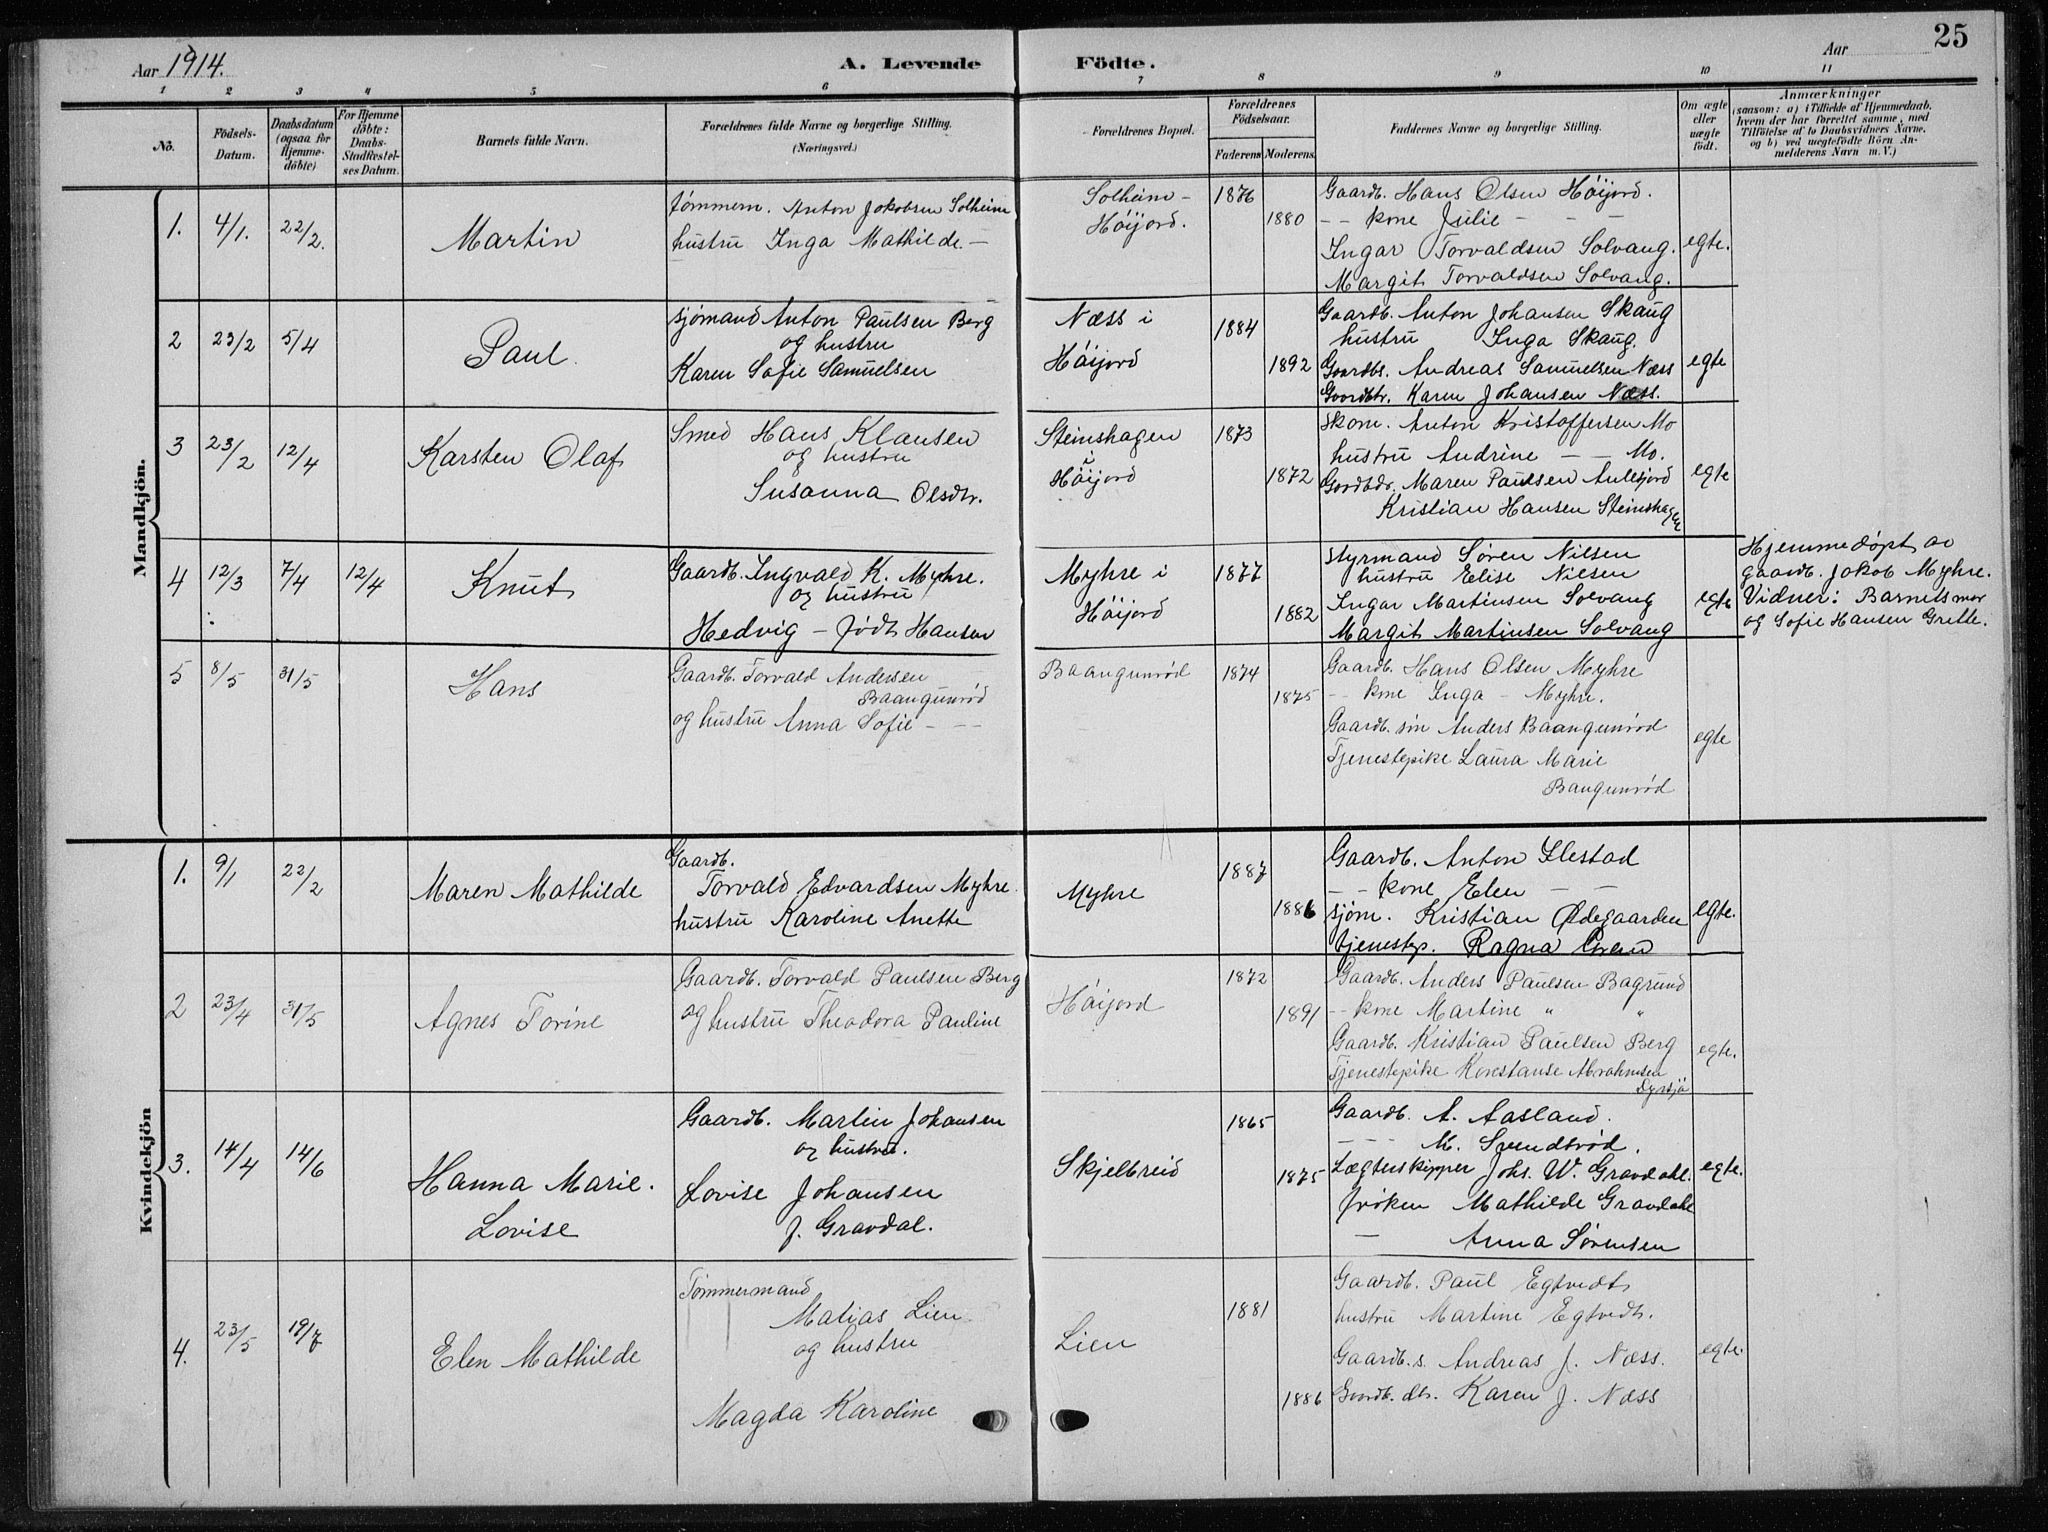 Aar 1914.
A. Levende Födte.
Aar
25
1 2 3 4 5 6 7 8 9 10 11
No.
Födsels-
Datum.
Daabsdatum
(ogsaa for
Hjemme-
döbte)
For Hjemme
döbte:
Daabs-
Stadfæstel-
ses Datum.
Barnets fulde Navn.
Forældrenes fulde Navne og borgerlige Stilling.
(Næringsvei.)
Forældrenes Bopæl.
Forældrenes
Födselsaar.
Faderens
Moderens.
Faddernes Navne og borgerlige Stilling.
Om ægte
eller
uægte
födt.
Anmærkninger
(saasom: a) i Tilfælde af Hjemmedaab.
hvem der har forrettet samme, med
Tilföielse af to Daabsvidners Navne.
og b) ved uegtefödte Börn An-
melderens Navn m. V.)
Mandkjön.
1. 4/1. 22/2.
Martin
tømmerm. Anton Jakobsen Solheim
hustru Inga Mathilde –
Solheim –
Höijord.
1876
1880
Gaardb. Hans Olsen Höijord.
– – kone Julie – – –
Ingar Torvaldsen Solvang.
Margit Torvaldsen Solvang.
egte.
2 23/2 5/4
Paul.
sjømand Anton Paulsen Berg
og hustru
Karen Sofie Samuelsen
Næss i
Höijord
1884
1892
Gaardb. Anton Johansen Skaug
hustru Inga Skaug.
Gaardbs. Andreas Samuelsen Næss
Gaardbtr. Karen Johansen Næss.
egte
3 23/2 12/4
Karsten Olaf
Smed Hans Klausen
og hustru
Susanna Olsdtr.
Steinshagen
i
Höijord
1873
1872
Skom. Anton Kristoffersen Mo
hustru Andrine – – Mo.
Maren Paulsen
Kristian Hansen Steinshagen
egte
4 12/3 7/4 12/4
Knut
Gaardb. Ingvald K. Myhre.
og hustru
Hedvig – født Hansen
Myhre i
Höijord
1877
1882
styrmand Søren Nilsen
hustru Elise Nilsen
Ingar Martinsen Solvang
Margit Martinsen Solvang
egte
Hjemmedøpt av
gaardb. Jakob Myhre.
Vidner: Barnets mor
og Sofie Hansen Grette.
5 8/5 31/5
Hans
Gaardb. Torvald Andersen
Baangunrød
og hustru Anna Sofie – – –
Baangunrød
1874
1875
Gaardb. Hans Olsen Myhre
– – kone Inga – Myhre.
Gaardb. søn Anders Baangunrød
Tjenestepike Laura Marie
Baangunrød
egte
Kvindekjön
1. 9/1 22/2
Maren Mathilde
Gaardb.
Torvald Edvardsen Myhre.
hustru Karoline Anette
Myhre
1887
1886
Gaardb. Anton Ilestad
– – kone Elen – –
sjøm. Kristian Ødegaarden
tjenestep. Ragna
egte.
2 23/4 31/5
Agnes Torine
Gaardb. Torvald Paulsen Berg
og hustru Theodora Pauline
Höijord
1872
1891
Gaardb. Anders Paulsen Bagrund
– – kone Martine " "
Gaardb. Kristian Paulsen Berg
Tjenestepike Konstanse Abrahmsen
Dyrsjö
egte.
3. 14/4 14/6
Hanna Marie.
Lovise
Gaardb. Martin Johansen
og hustru.
Lovise Johansen
f. Gravdal.
Skjelbreid
1865
1875
Gaardb. A. Aasland.
– – – M. Svendsrød.
Lægterskipper Johs. W. Gravdahl.
frøken Mathilde Gravdahl
– Anna Sørensen
egte.
4. 23/5 19/7
Elen Mathilde
Tømmermand
Matias Lien
og hustru
Magda Karoline
Lien
1881
1886
Gaardb. Paul Egtvedt
hustru Martine Egtvedt.
Gaardb. s. Andreas J. Næss.
Gaardb. dtr. Karen J. Næss
egte.